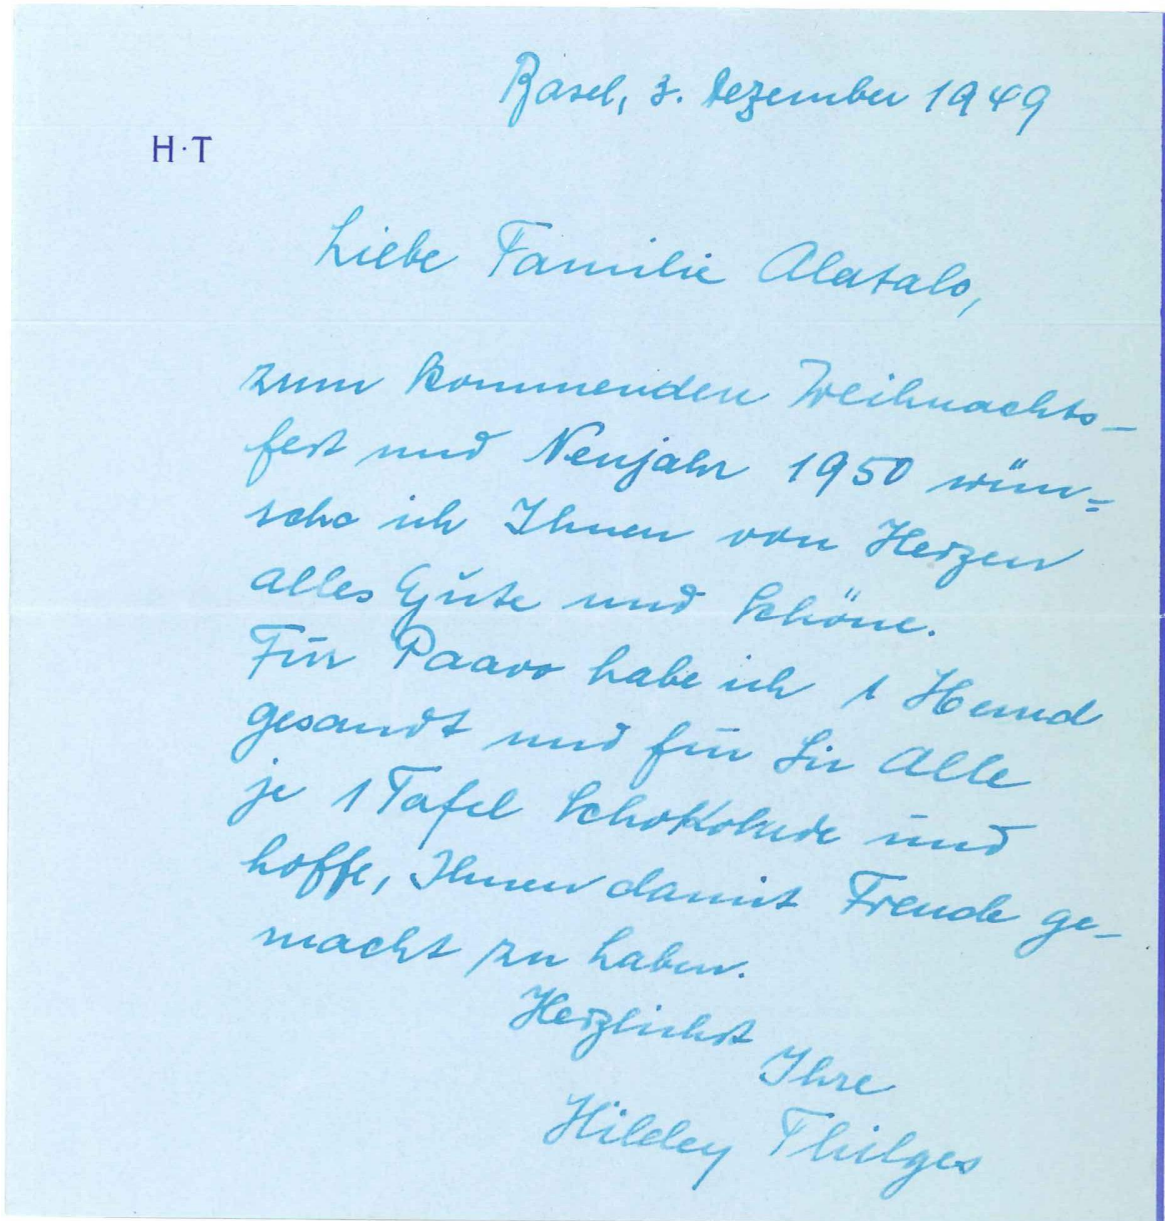 Basel, 3. Dezember 1949
H·T
Liebe Familie Alatalo,
zum kommenden Weihnachts-
fest und Neujahr 1950 wün=
sche ich Ihnen von Herzen
alles Gute und Schöne.
Für Paavo habe ich 1 Hemd
gesandt und für Sie Alle
je 1 Tafel Schokolade und
hoffe, Ihnen damit Freude ge-
macht zu haben.
Herzlichst
Ihre
Thilges